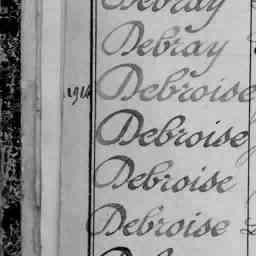 Debray
Debray
1914 Debroise
Debroise
Debroise
Debroise